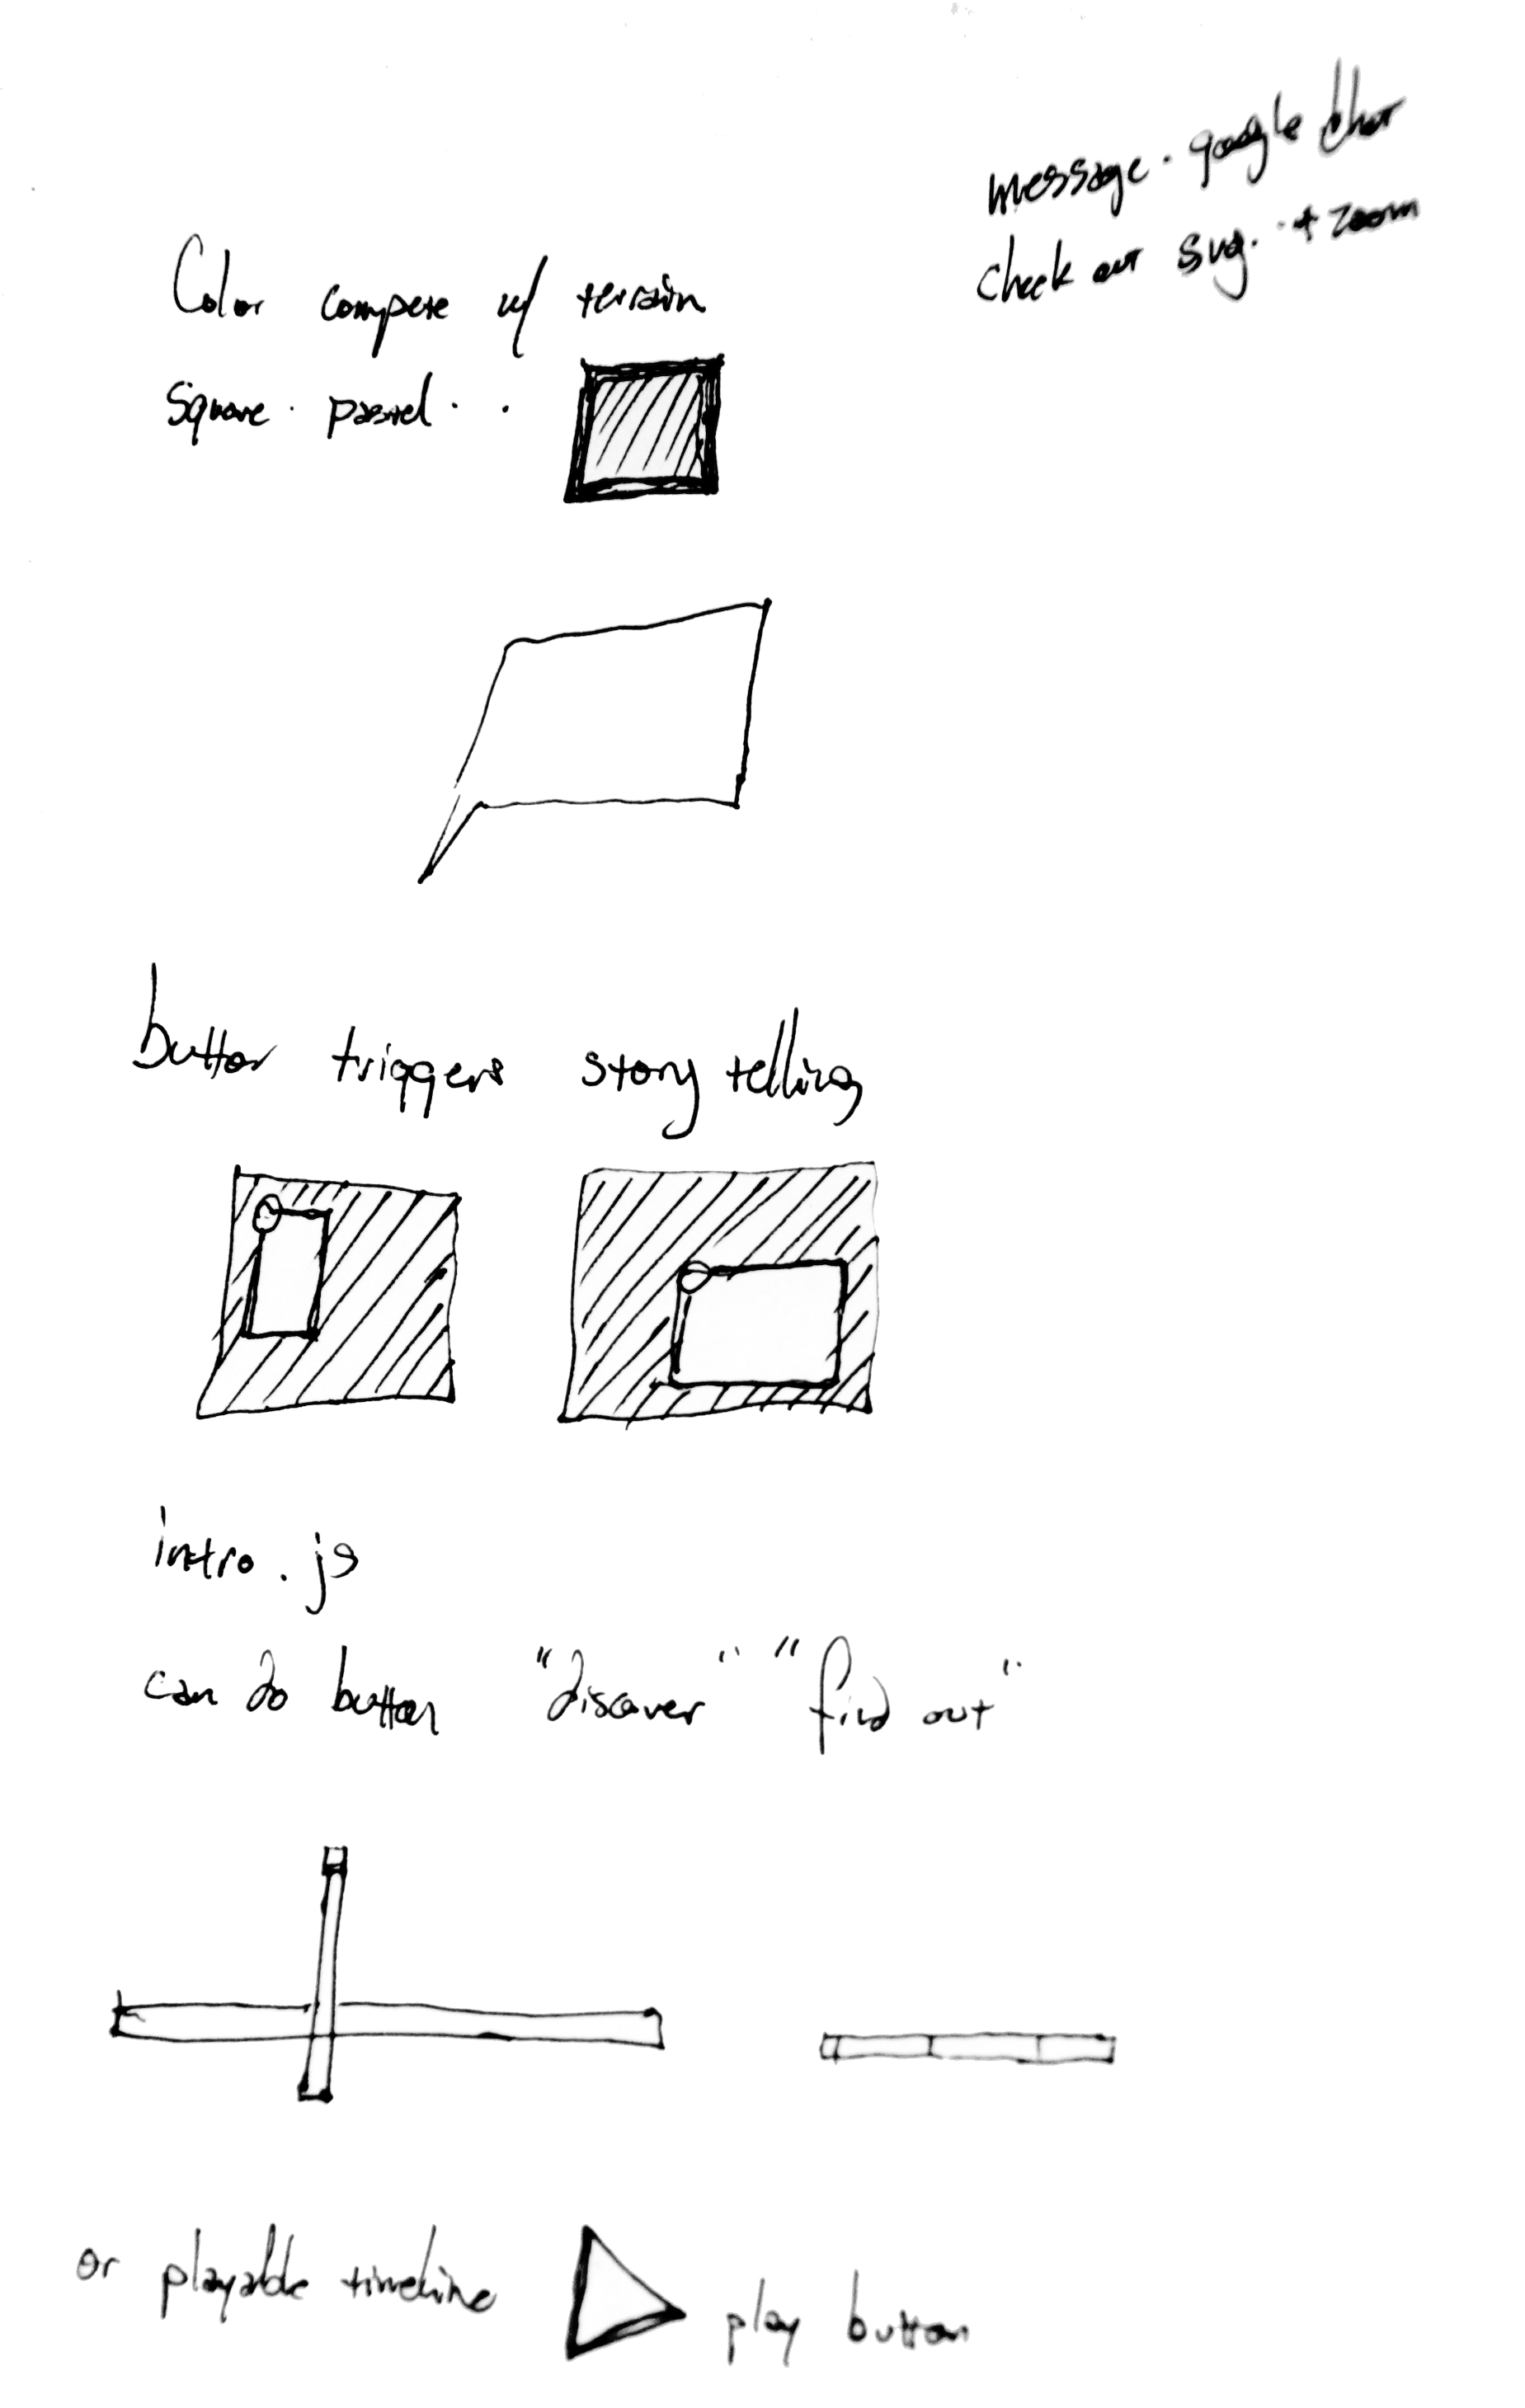 message. google chat
check out svg. + zoom
Color compete w/ terrain
Square. pastel..
button triggers story telling
intro.js
can do button "discover" "find out"
or playable timeline play button